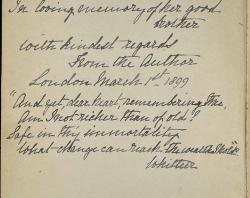 In loving memory of her good
brother
with kindest regards
from the Author
London March 1st 1899
"And yet, dear heart, remembering thee,
Am I not richer than of old?
Safe in thy immortality
What change can reach the wealth I hold?"
Whittier